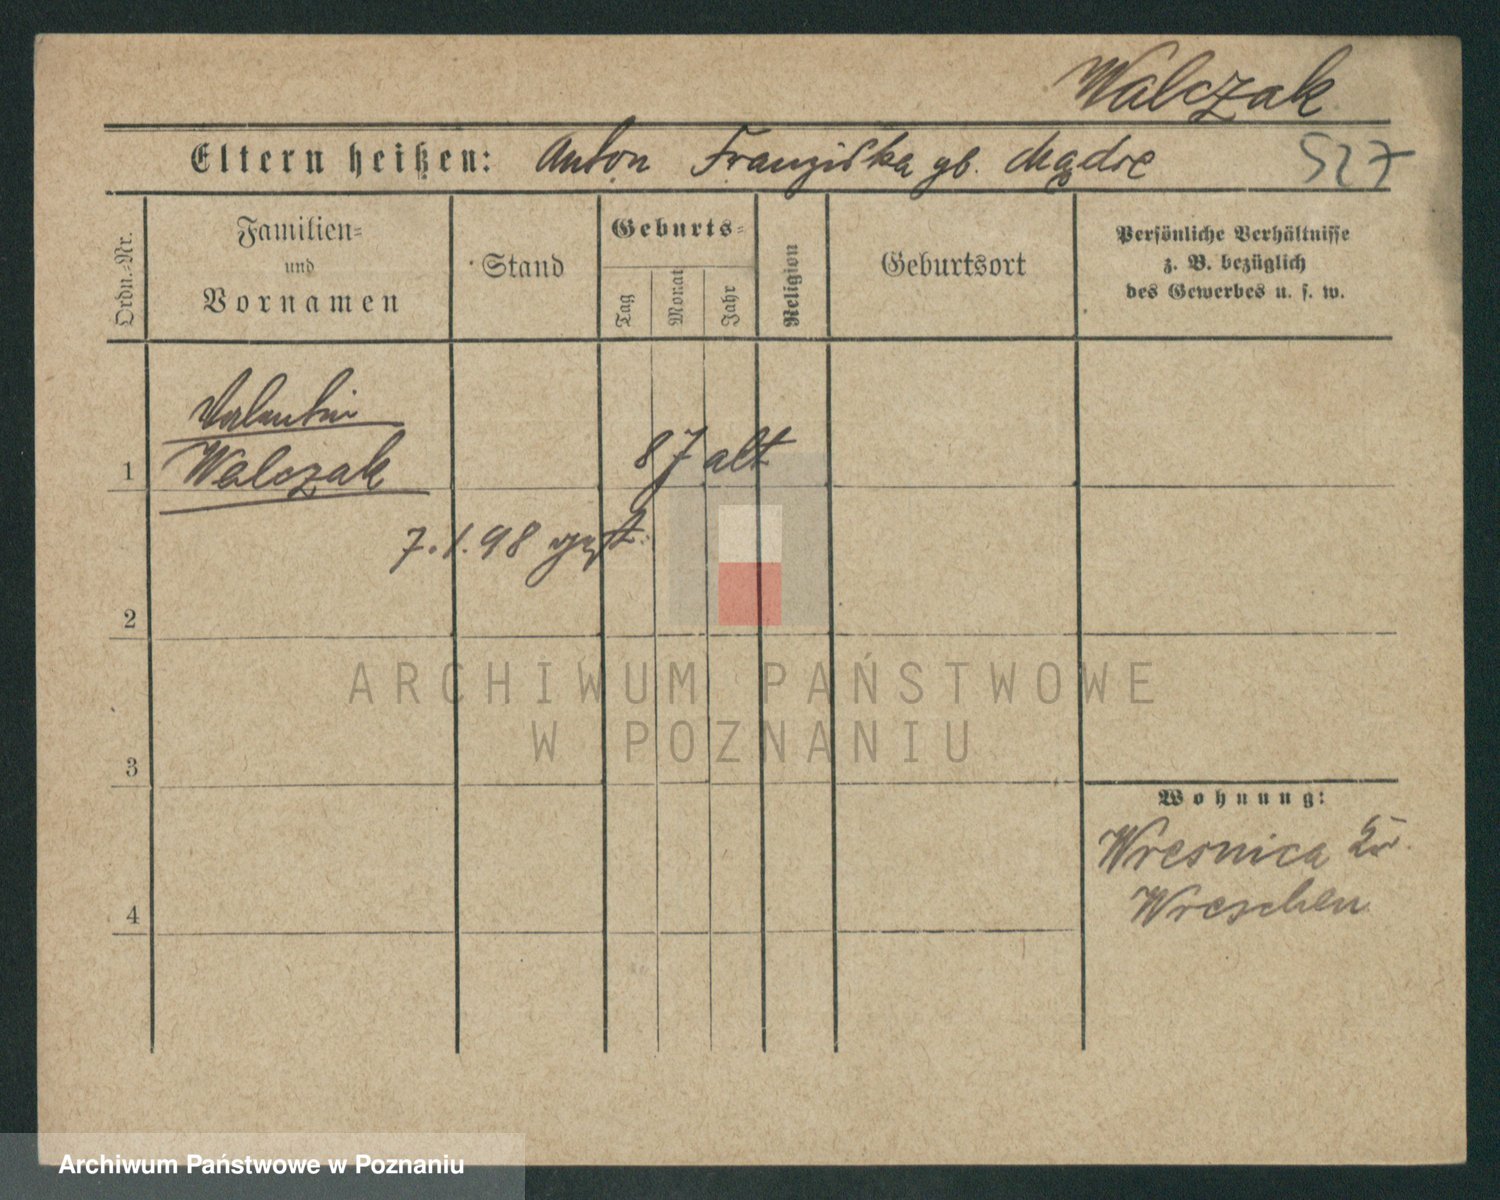 Walczak
Eltern heißen: Anton Franziska gb. Mądre
527
Ordn.-Nr.
Familien-
und
Vornamen
Stand
Geburts-
Tag
Monat
Jahr
Religion
Geburtsort
Persönliche Verhältnisse
z. B. bezüglich
des Gewerbes u. s. w.
Valentin
1 Walczak
8 J alt
7.1.98 gest.
2
ARCHIWUM PAŃSTWOWE
W POZNANIU
3
Wohnung:
Wresnica
Wreschen
4
Archiwum Państwowe w Poznaniu